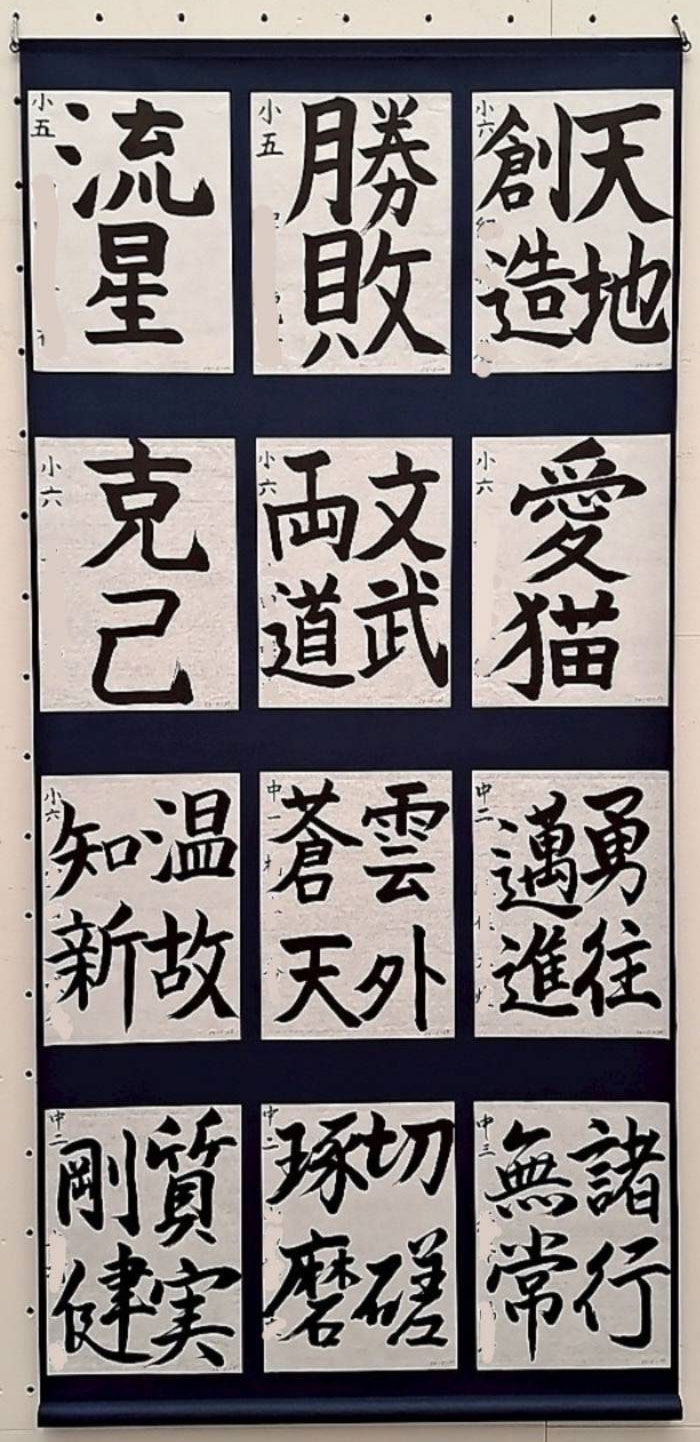 天地
創造
小六
勝敗
小五
流星
小五
愛猫
小六
文武
両道
小六
克己
小六
勇往
邁進
中二
雲外
蒼天
中一
温故
知新
小六
諸行
無常
中三
切磋
琢磨
中二
質実
剛健
中二